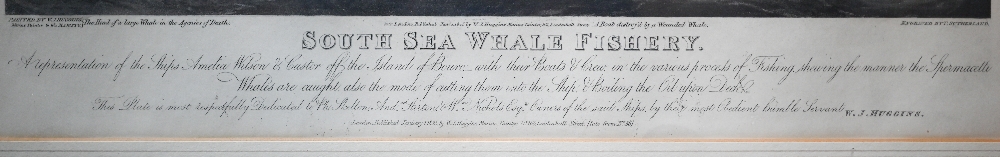 PAINTED BY W. J. HUGGINS, The Head of a large Whale in the Agonies of Death. London, Published by W. J. Huggins Marine Painter, Leadenhall Street. A Boat destroy'd by a Wounded Whale. ENGRAVED BY T. SUTHERLAND.
Marine Painter
SOUTH SEA WHALE FISHERY.
A representation of the Ships Amelia Wilson & Castor off the Island of Bouro, with their Boats & Crew, in the various process of Fishing, shewing the manner the Spermacetti
Whales are caught, also the mode of cutting them into the Ship, & Boiling the Oil upon Deck
This Plate is most respectfully Dedicated to Owners of the said Ships, by their most Obedient humble Servant W. J. HUGGINS.
London, Published January by W. J. Huggins, Marine Painter Leadenhall Street